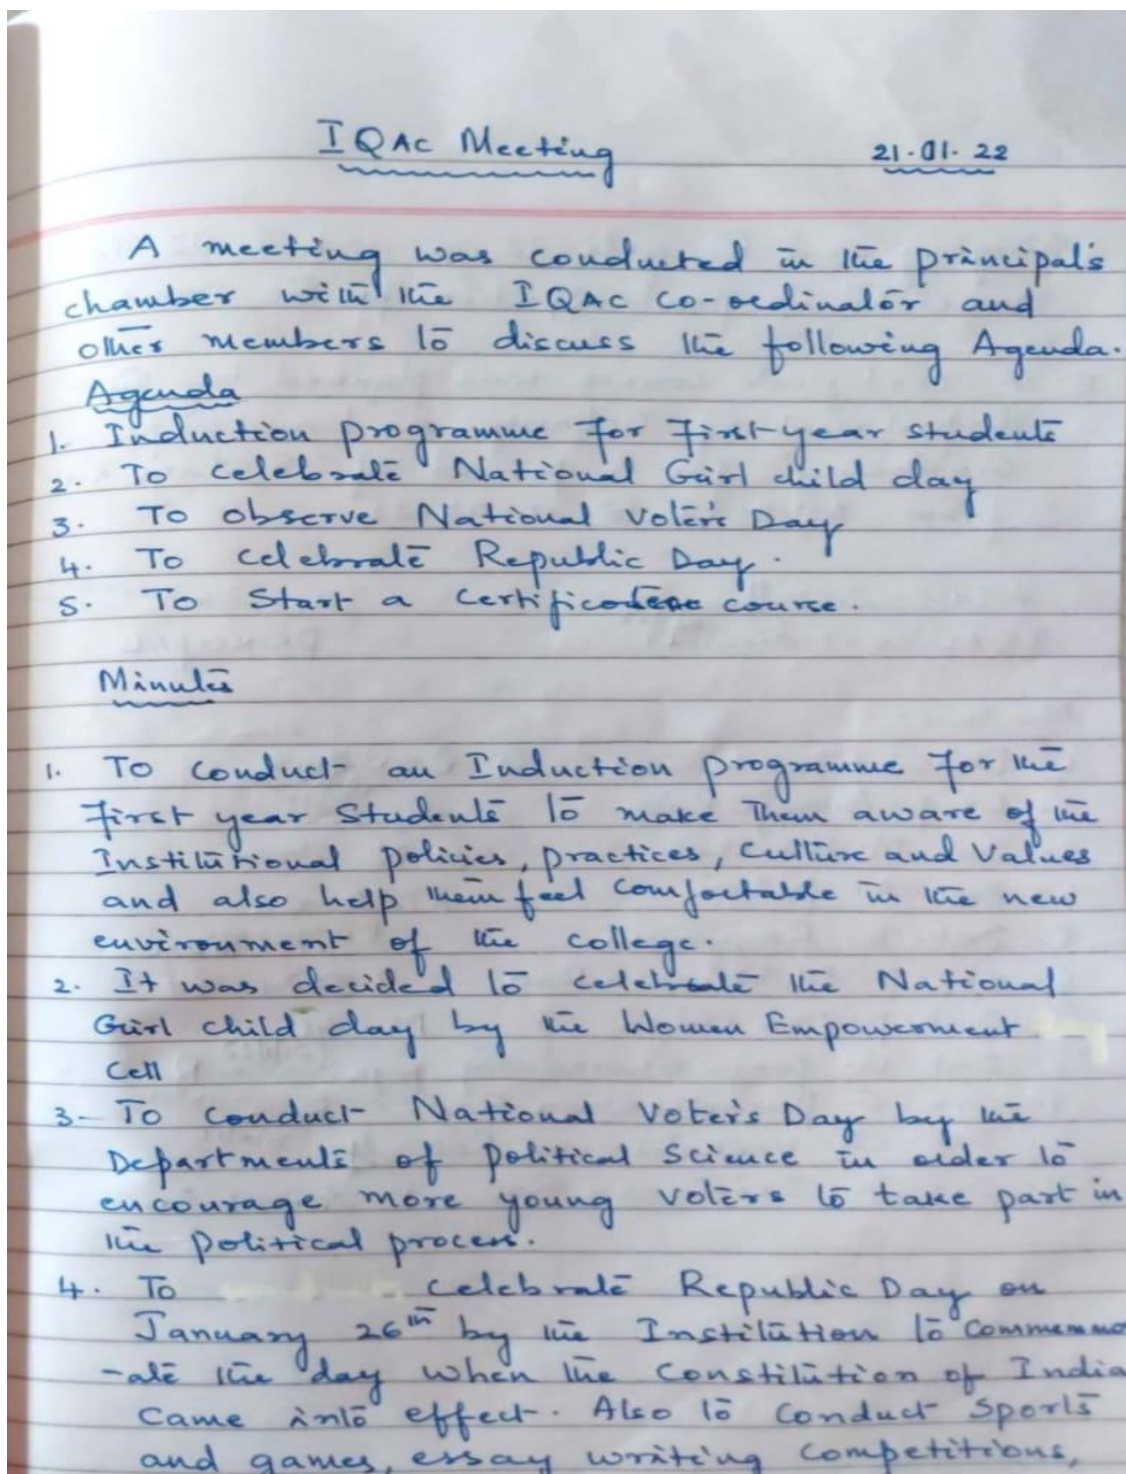 IQAC Meeting 21.01.22
A meeting was conducted in the principal's
chamber with the IQAC co-ordinator and
other members to discuss the following Agenda.
Agenda
1. Induction programme for first year students
2. To celebrate National Girl child day
3. To observe National Voter's Day
4. To celebrate Republic Day.
5. To Start a certificate course.
Minutes
1. To conduct an Induction programme for the
first year Students to make them aware of the
Institutional policies, practices, culture and values
and also help them feel comfortable in the new
environment of the college.
2. It was decided to celebrate the National
Girl child day by the Women Empowerment
Cell
3- To conduct National Voter's Day by the
Departments of political science in order to
encourage more young voters to take part in
the political process.
4. To celebrate Republic Day on
January 26th by the Institution to commemmo
-ate the day when the Constitution of India
came into effect. Also to conduct sports
and games, essay writing competitions,